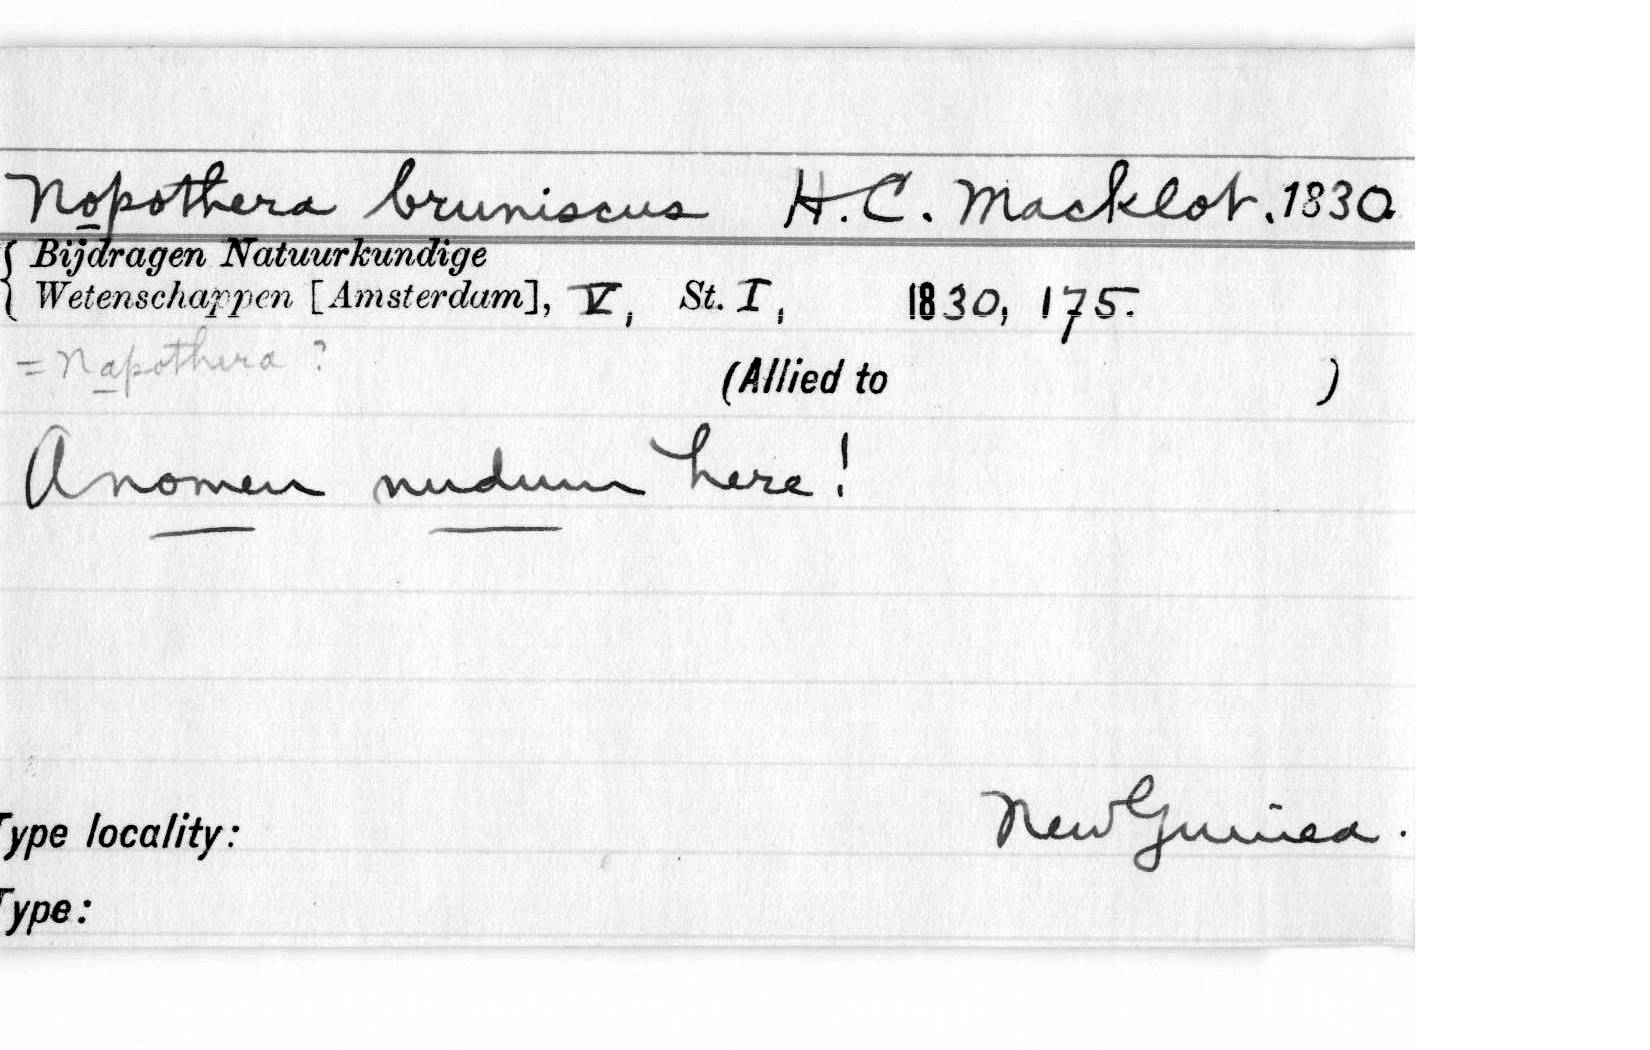 Nopothera bruniscus H.C. Macklot. 1830
Bijdragen Natuurkundige
Wetenschappen [Amsterdam], V, St. I, 1830, 175.
= Napothera ?
(Allied to )
A nomen nudum here!
New Guinea.
Type locality:
Type: